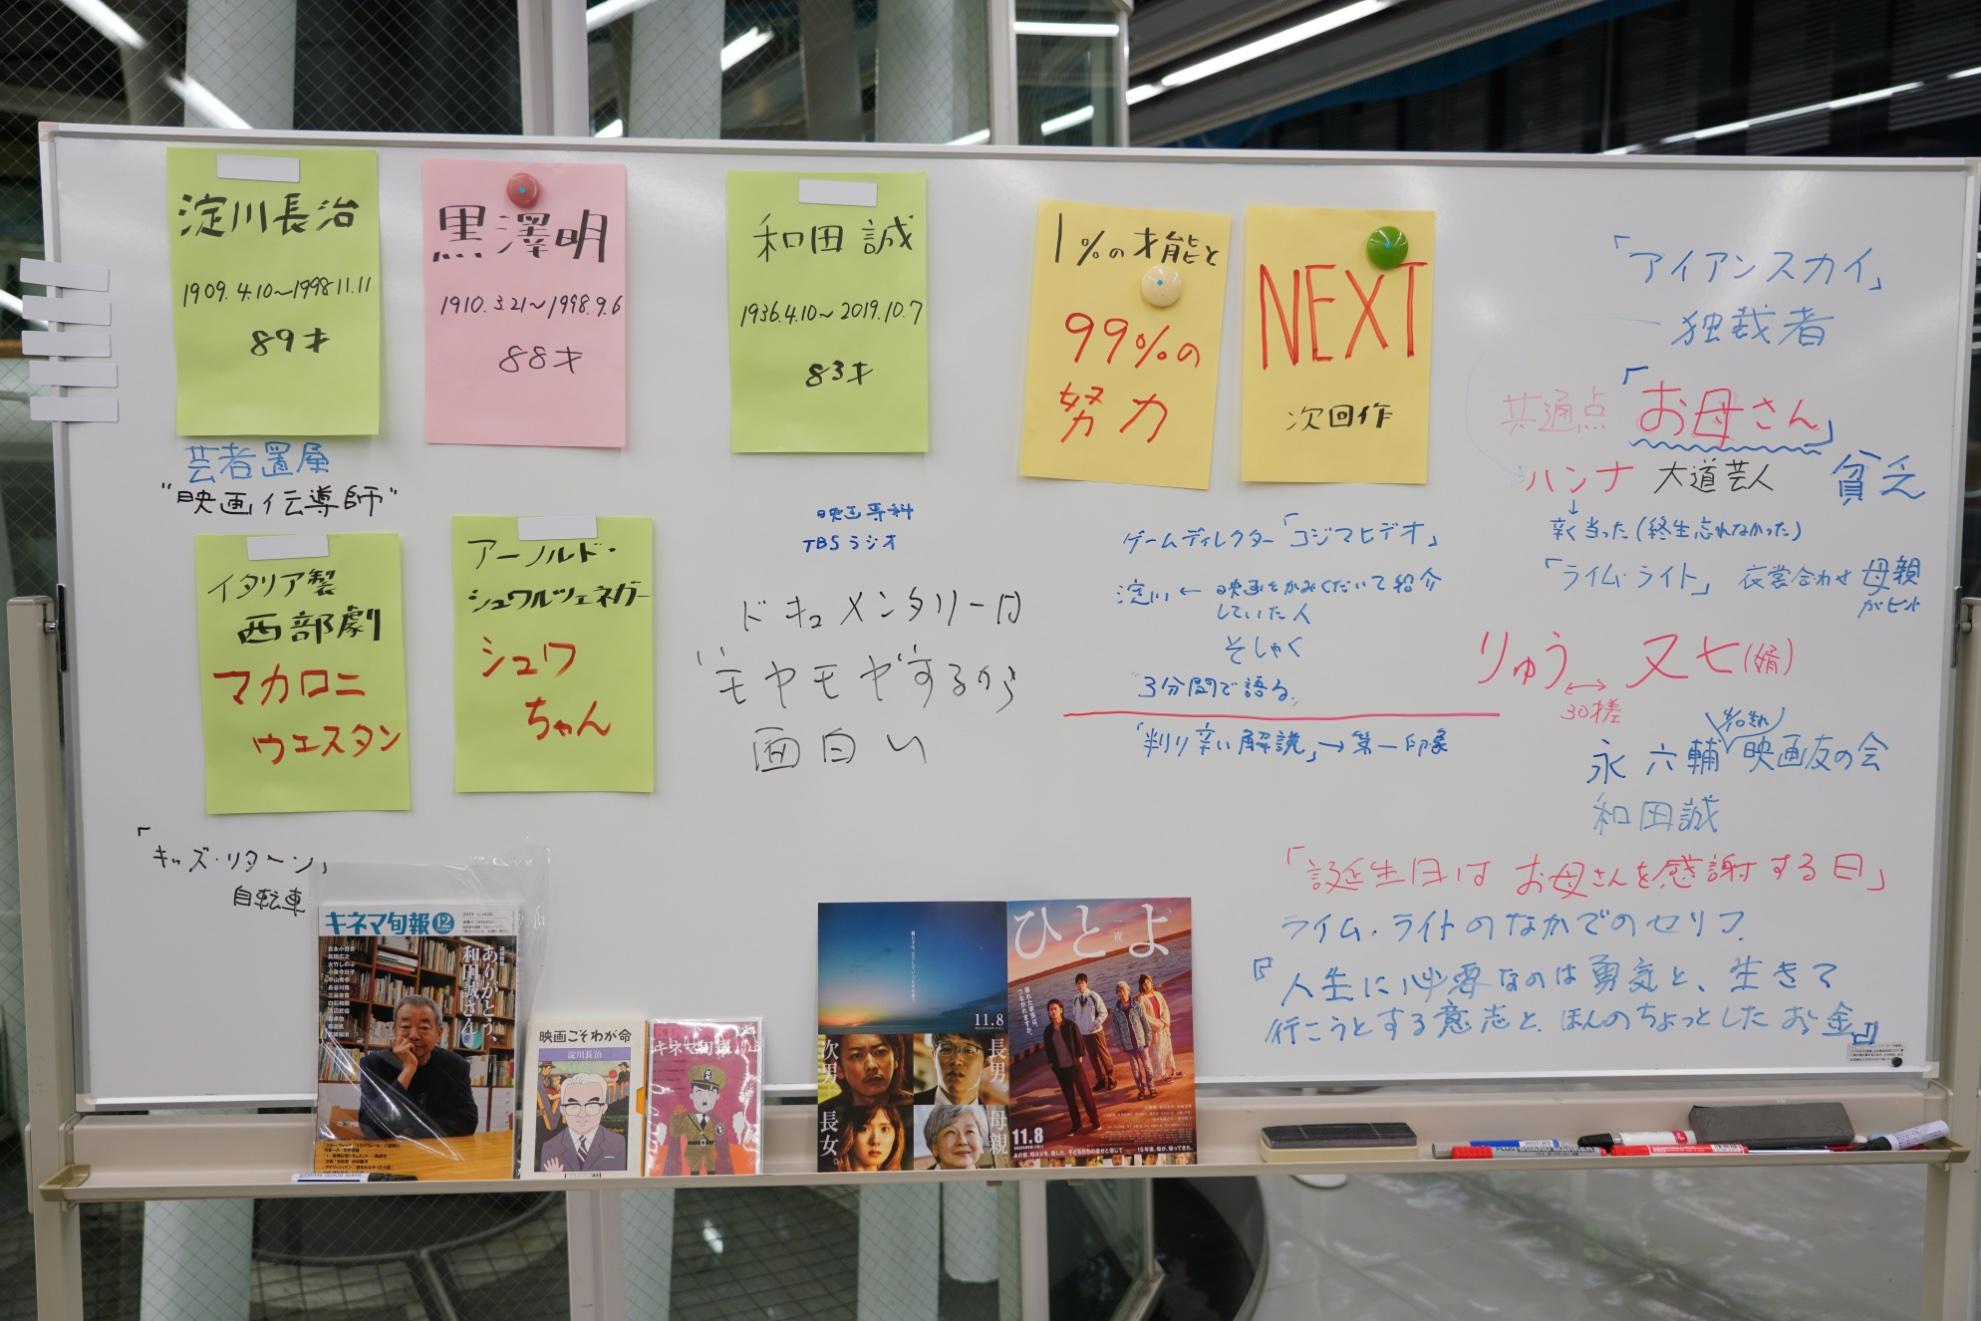 淀川長治
1909.4.10～1998.11.11
89才
芸者置屋
"映画伝導師"
黒澤明
1910.3.21～1998.9.6
88才
和田誠
1936.4.10～2019.10.7
83才
1%の才能と
99%の
努力
NEXT
次回作
イタリア製
西部劇
マカロニ
ウエスタン
アーノルド・
シュワルツェネガー
シュワ
ちゃん
映画専科
TBSラジオ
ドキュメンタリーは
"モヤモヤ"するから
面白い
ゲームディレクター「コジマヒデオ」
淀川 ← 映画をかみくだいて紹介
していた人
そしゃく
"3分間で語る"
「判り辛い解説」→第一印象
「アイアンスカイ」
独裁者
共通点「お母さん」
ハンナ 大道芸人 貧乏
↓
辛く当った(終生忘れなかった)
「ライム・ライト」 衣裳合わせ 母親
がヒント
りゅう ↔ 又七(婿)
30才差
永六輔 映画友の会
和田誠
「誕生日は お母さんを感謝する日」
ライム・ライトのなかでのセリフ
『人生に必要なのは勇気と、生きて
行こうとする意志と、ほんのちょっとしたお金』
「キッズ・リターン」
自転車
キネマ旬報 12
ありがとう、
和田誠さん
映画こそわが命
淀川長治
キネマ旬報
11.8
次男
長男
長女。
母親。
ひとよ
夜
11.8